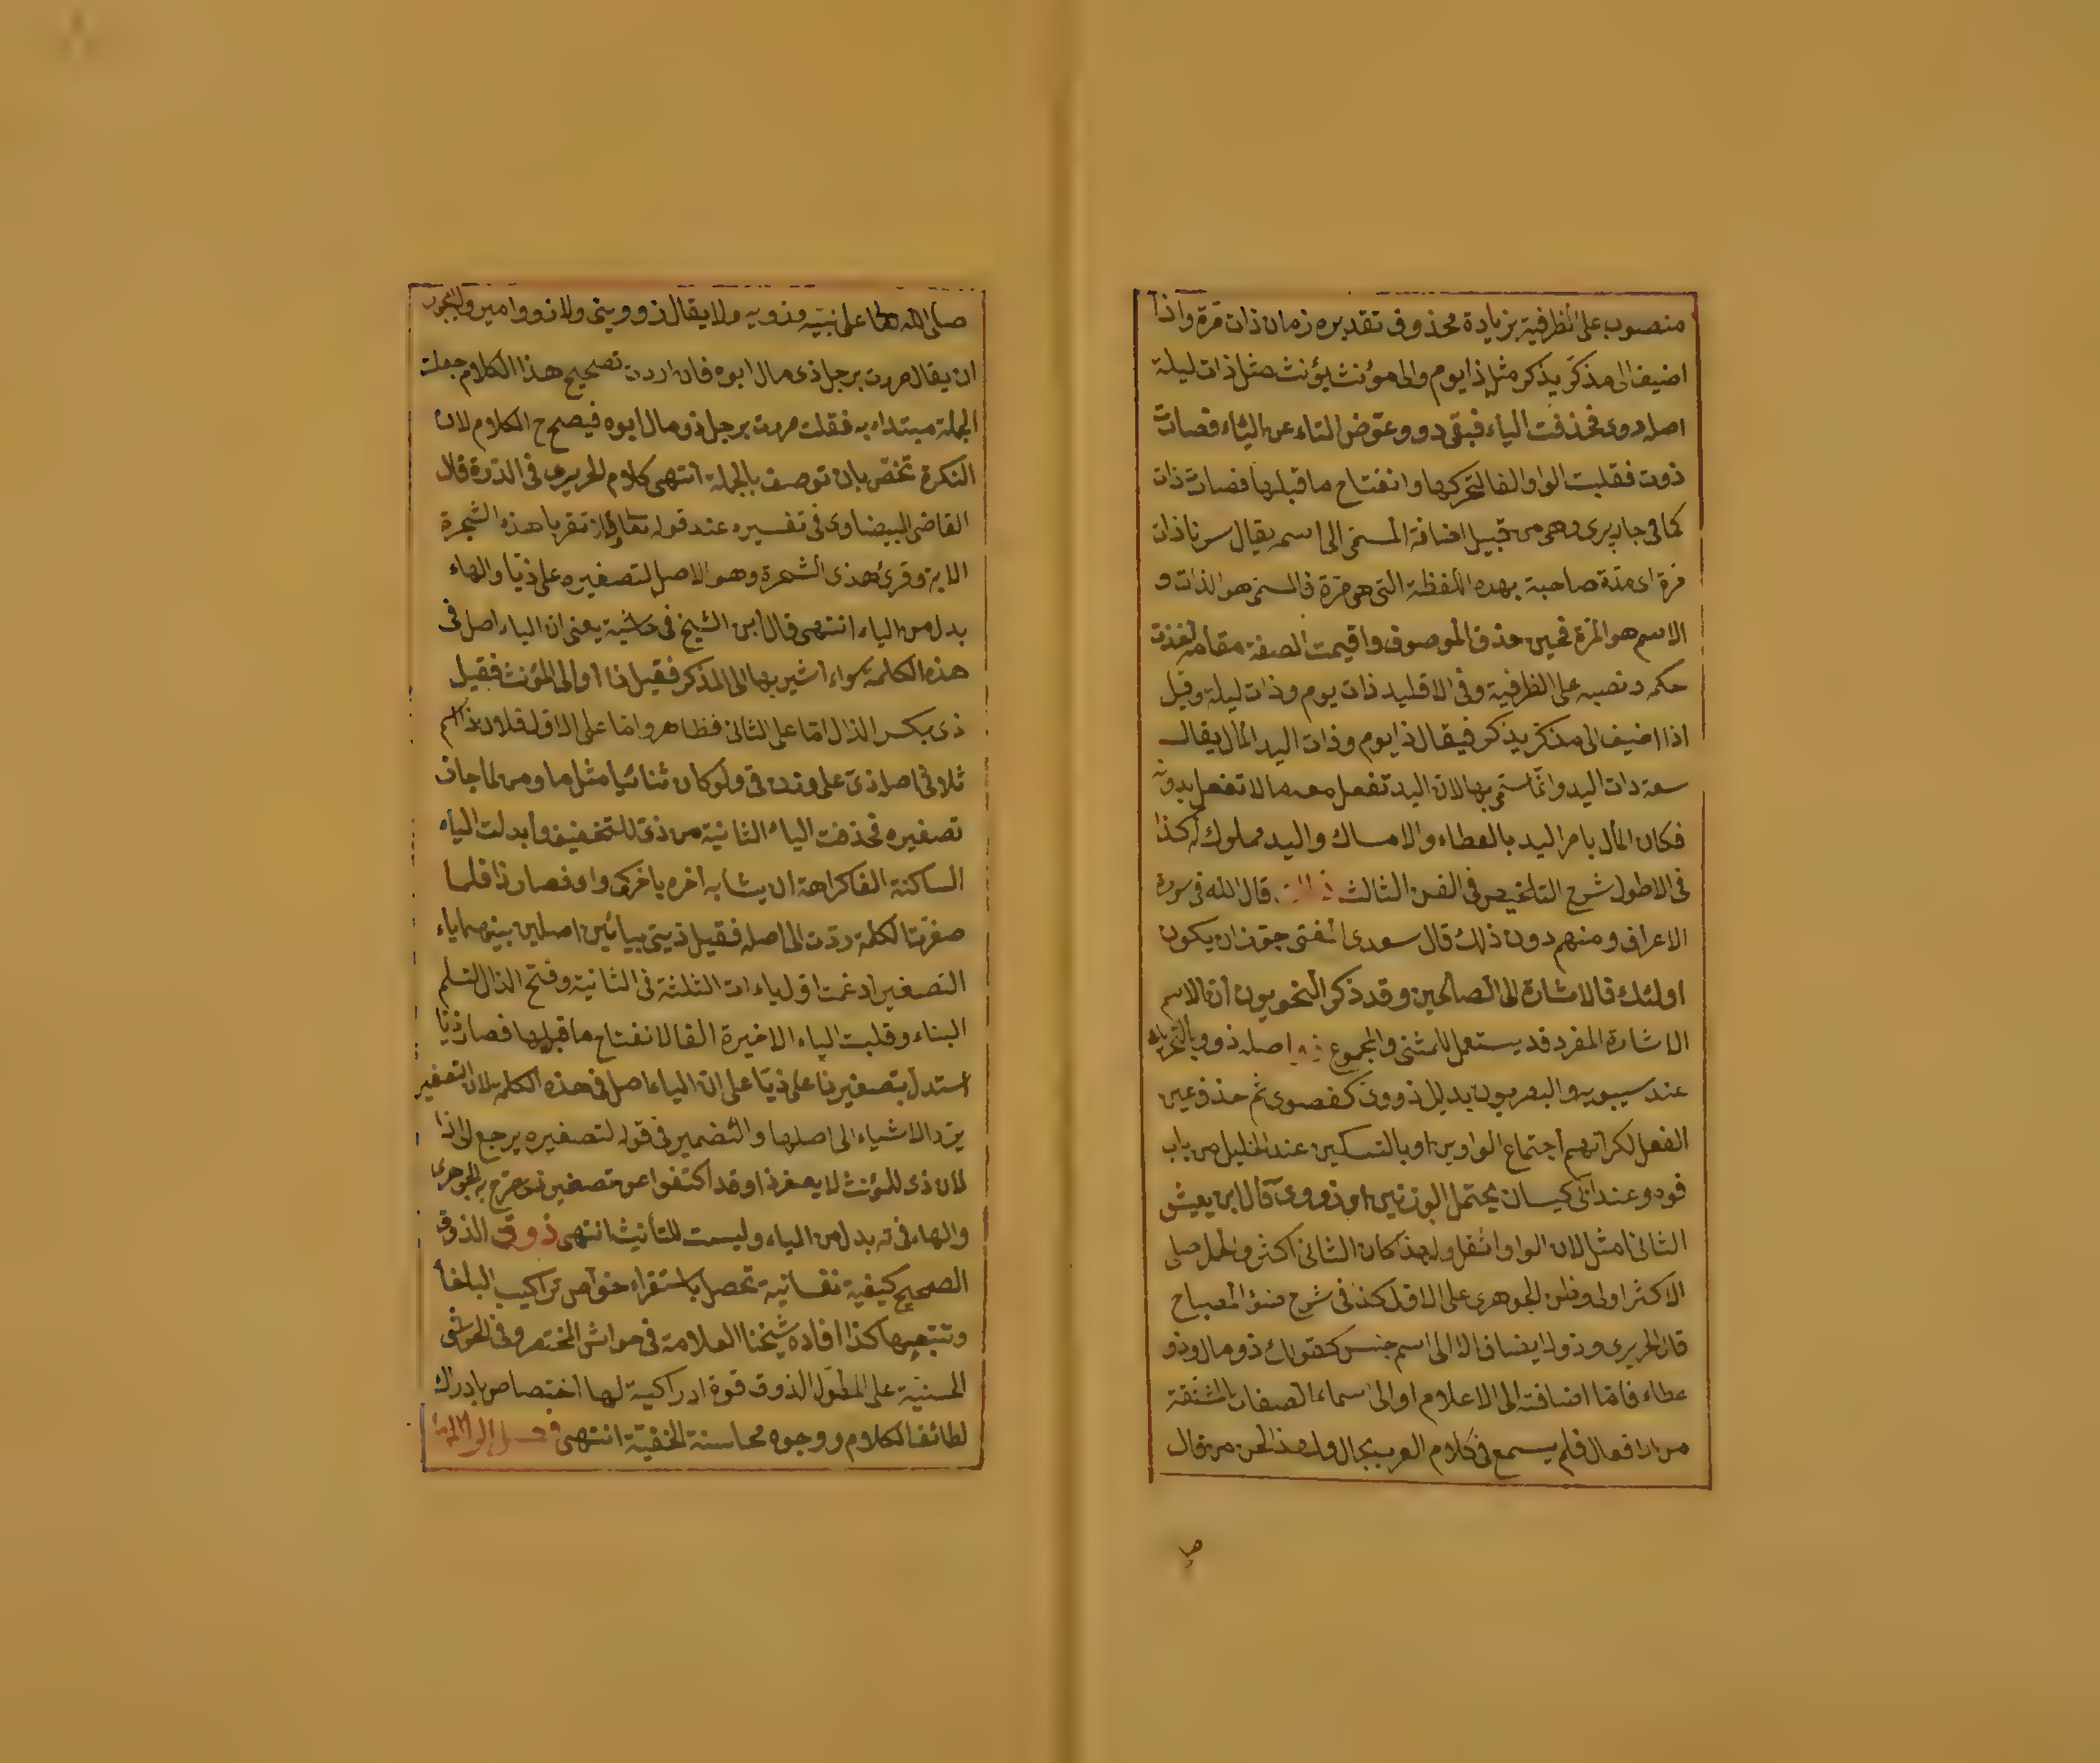 منصوب على الظرفية بزيادة محذوف تقديره زمان ذات مرة واذا
اضيف الى مذكر يذكر مثل ذا يوم والى مؤنث يؤنث مثل ذات ليلة
اصله دوى فحذفت الياء فبقى دو وعوض التاء عن الياء فصات
ذوت فقلبت الواو الفا لتحركها وانفتاح ما قبلها فصارت ذات
كما فى جاربردى وهى من قبيل اضافة المسمى الى اسمه يقال سرنا ذات
مرة اى مدة صاحبة بهذه اللفظة التى هى مرة فالمسمى هو الذات و
الاسم هو المرة فحين حذف الموصوف واقيمت الصفة مقامه اخذت
حكمه ونصبه على الظرفية وفى الاقليد ذات يوم وذات ليلة وقيل
اذا اضيف الى مذكر يذكر فيقال ذا يوم وذات اليد المال يقال
سعة ذات اليد وانما سمى بها لان اليد تفعل معه ما لا تفعل بدونه
فكان المال يامر اليد بالعطاء والامساك واليد مملوك له كذا
فى الاطول شرح التلخيص فى الفن الثالث قال الله فى سورة
الاعراف ومنهم دون ذلك قال سعدى المفتى جوز ان يكون
اولئك فالاشارة الى الصالحين وقد ذكر النحويون ان الاسم
الاشارة المفرد قد يستعمل للمثنى والمجموع ذو اصله ذوو بالتحريك
عند سيبويه والبصريون بدليل ذووى كعصوى ثم حذف عين
الفعل لكراهتهم اجتماع الواوين او بالتسكين عند الخليل من باب
قوة وعند ابن كيسان يحتمل الوزنين او ذووى قال ابن يعيش
الثانى امثل لان الواو اثقل ولهذا كان الثانى اكثر والحمل على
الاكثر اولى وظن الجوهرى على الاول كذا فى شرح ضوء المصباح
قال الحريرى وذو لا يضاف الا الى اسم جنس كقولك ذو مال وذو
عطاء فاما اضافته الى الاعلام او الى اسماء الصفات المشتقة
من الافعال فلم يسمع فى كلام العرب بحال ولهذا لحن من قال
صلى الله على نبيه وذويه ولا يقال ذو وبنى ولا ذو وامير ولا يجوز
ان يقال مررت برجل ذى مال ابوه فان اردت تصحيح هذا الكلام جعلت
الجملة مبتداء به فقلت مررت برجل ذو مال ابوه فيصح ح الكلام لان
النكرة تختص بان توصف بالجملة انتهى كلام الحريرى فى الدرة قال
القاضى البيضاوى فى تفسيره عند قوله تعالى ولا تقربا هذه الشجرة
الاية وقرئ هذى الشجرة وهو الاصل لتصغيره على ذيا والهاء
بدل من الياء انتهى قال ابن الشيخ فى حاشيته يعنى ان الياء اصل فى
هذه الكلمة سواء اشير بها الى المذكر فقيل ذا او الى المؤنث فقيل
ذى بكسر الذال اما على الثانى فظاهر واما على الاول فلان ذا اسم
ثلاثى اصله ذى على وزن فى ولو كان ثنائيا مثل ما ومن لما جاز
تصغيره فحذفت الياء الثانية من ذى للتخفيف وابدلت الياء
الساكنة الفا كراهة ان يشابه اخره باخر كى واى فصار ذا فلما
صغرت الكلمة ردت الى اصله فقيل ذييى بيائين اصلين بينهما ياء
التصغير ادغمت اولى ياءات الثلثة فى الثانية وفتح الذال لتسلم
البناء وقلبت الياء الاخيرة الفا لانفتاح ما قبلها فصار ذيا
استدل بتصغير ذا على ذيا على ان الياء اصل فى هذه الكلمة لان التصغير
يرد الاشياء الى اصلها والضمير فى قوله لتصغيره يرجع الى ذا
لان ذى للمؤنث لا يصغر ذا وقد اكتفوا عن تصغير ذى صرح به الجوهرى
والهاء فى ذه بدل من الياء وليست للتأنيث انتهى ذوقى الذوق
الصحيح كيفية نفسانية تحصل باستقراء خواص تراكيب البلغا
وتتبعها كذا افاده شيخنا العلامة فى حواش المختصر وفى الحواشى
الحسنية على المطول الذوق قوة ادراكية لها اختصاص بادراك
لطائف الكلام ووجوه محاسنة الخفية انتهى فصل